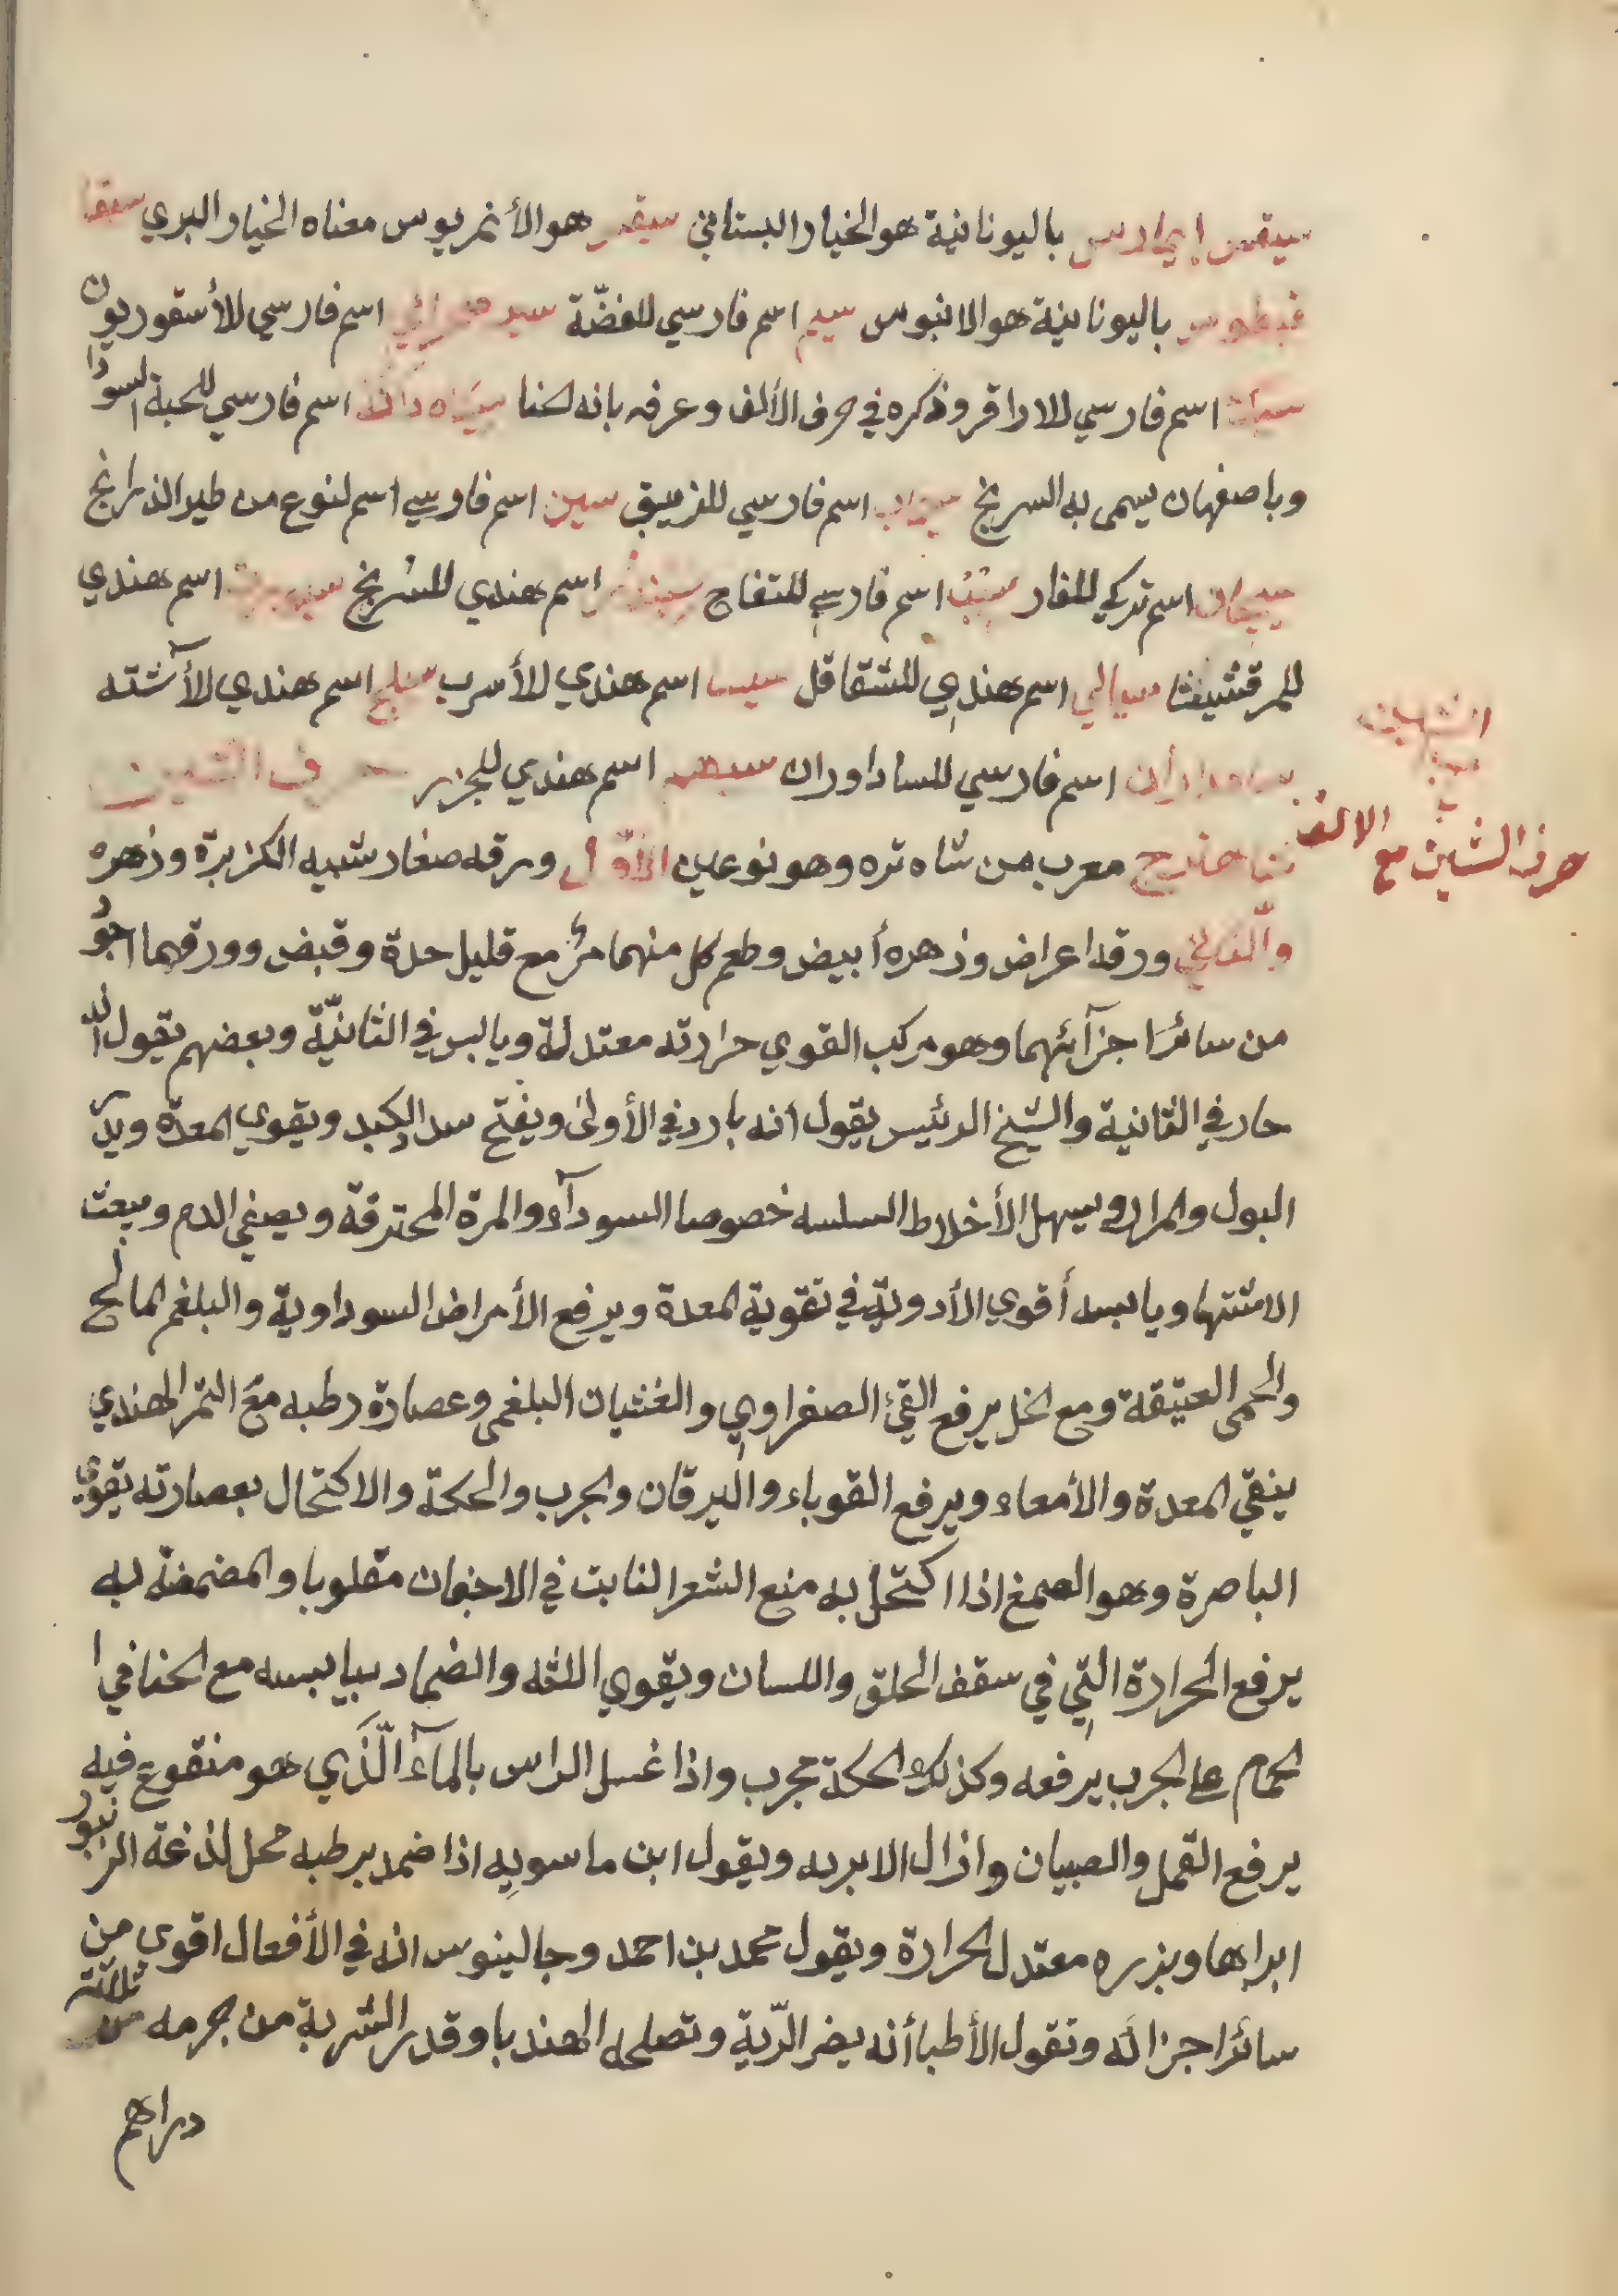 باليونانية هو الخيار البستاني هو الأنمريوس معناه الخيار البري
باليونانية هو الانبوس سيم اسم فارسي للفضّة اسم فارسي للأسقوريون
اسم فارسي للاراقر وذكره في حرف الألف وعرفه بانه لحنا سياه دانه اسم فارسي للحبة السودا
وباصفهان يسمى به السرنج سيماب اسم فارسي للزيبق سين اسم فارسي اسم لنوع من طير الذرارنج
سيجان اسم تركي للفار سيب اسم فارسي للتفاح اسم هندي للسرنج اسم هندي
للمرقشيثا سيالي اسم هندي للشقاقل سيسا اسم هندي للأسرب اسم هندي للأشنه
اسم فارسي للساداوران اسم هندي للجزر حرف الشين
حرف الشين مع الالف
شاهترج معرب من شاه تره وهو نوعين الأوّل ورقه صغار شبيه الكزبرة وزهره
والثاني ورقه اعراض وزهره أبيض وطعم كل منهما مرّ مع قليل حدة وقبض وورقهما اجود
من سائر اجزآئهما وهو مركب القوي حرارته معتدلة ويابس في الثانيّة وبعضهم يقول انه
حار في الثانية والشيخ الرئيس يقول انه بارد في الأولى ويفتح سدد الكبد ويقوي المعدة ويدر
البول والمرار ويسهل الأخلاط السلسه خصوصا السودآء والمرة المحترقة ويصفي الدم ويبعث
الاشتها ويابسه أقوي الأدوية في تقوية المعدة ويرفع الأمراض السوداوية والبلغم المالح
والحمى العتيقة ومع الخل يرفع القيئ الصفراوي والغثيان البلغمي وعصارة رطبه مع التمر الهندي
ينقي المعدة والأمعاء ويرفع القوباء واليرقان والجرب والحكة والاكتحال بعصارته يقوي
الباصرة وهو الصمغ اذا اكتحل به منع الشعر النابت في الاجفان مقلوبا والمضمضة به
يرفع الحرارة التي في سقف الحلق واللسان ويقوي اللثه والضماد بيابسه مع الحنا في ا
لحمام على الجرب يرفعه وكذلك الحكة مجرب واذا غسل الراس بالمآء الّذي هو منقوع فيه
يرفع القمل والصيبان وازال الابريه ويقول ابن ماسويه اذا ضمد برطبه محل لذغة الزنبور
ابراها وبزره معتدل الحرارة ويقول محمد بن احمد وجالينوس انه في الأفعال اقوى من
سائر اجزائه وتقول الأطبا أنه يضر الرّية وتصلحه الهندبا وقدر الشربة من جرمه من ثلاثة
دراهم